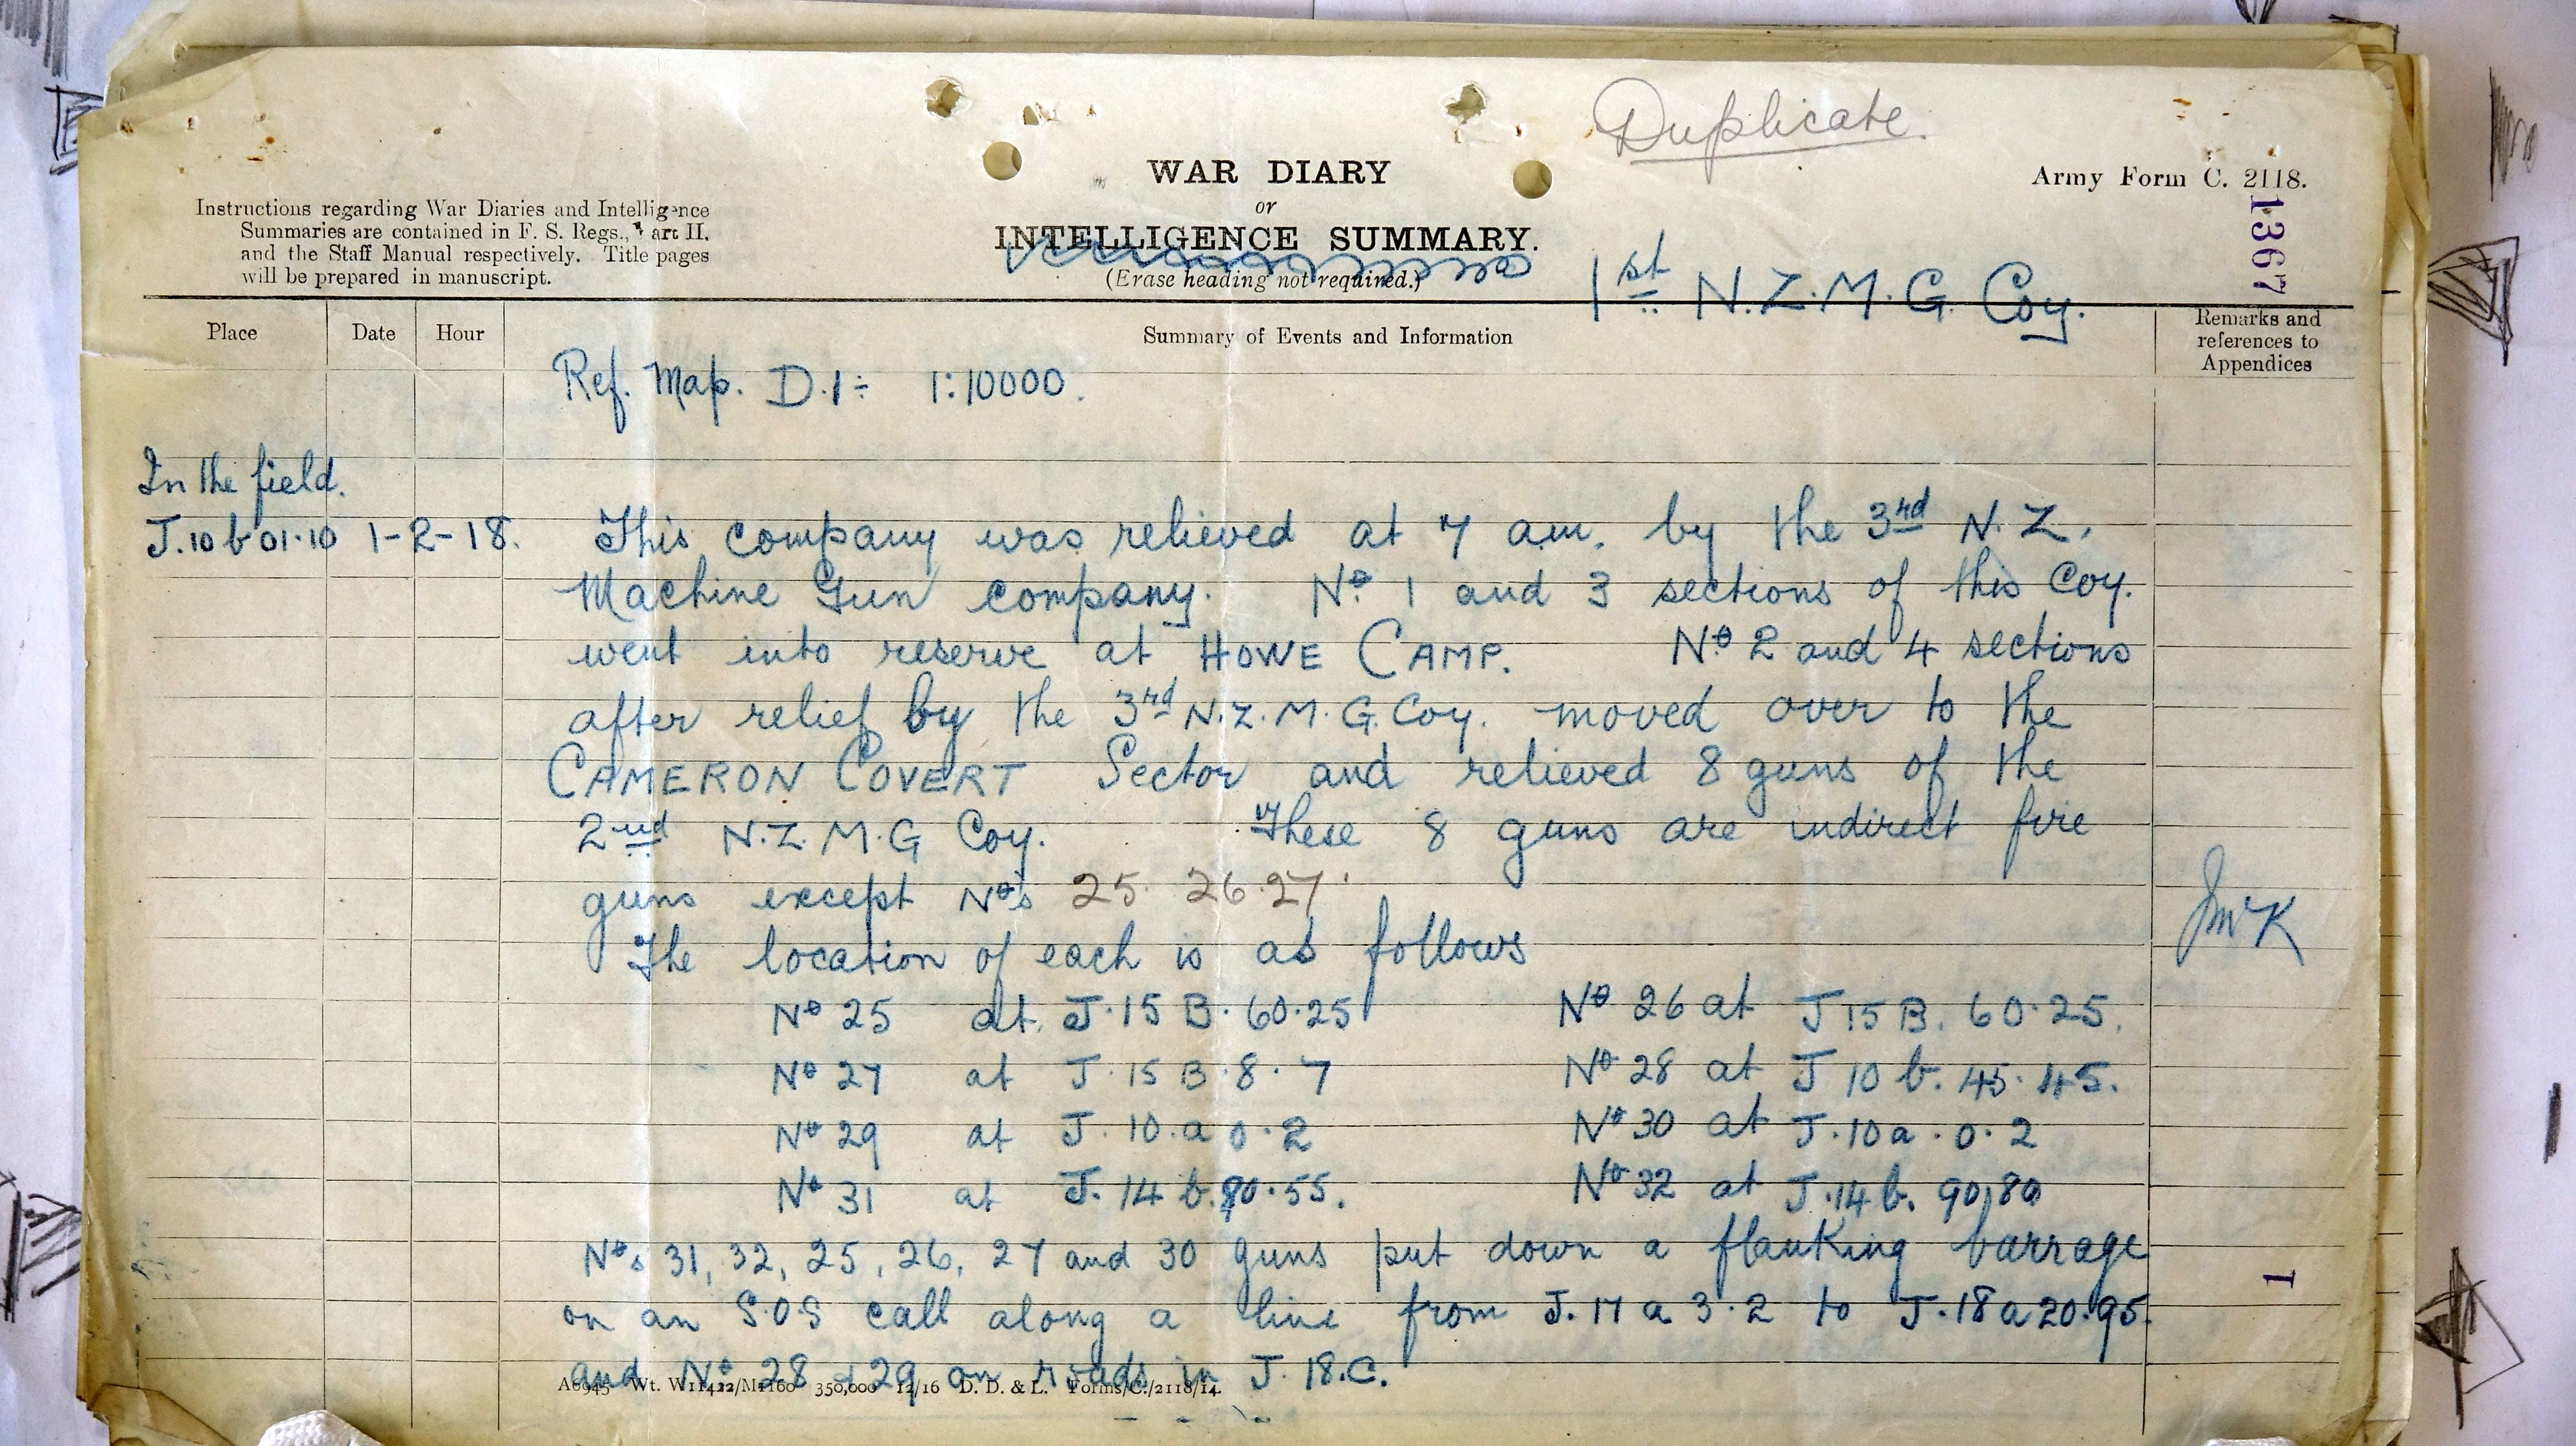 Duplicate.
WAR DIARY
or
INTELLIGENCE SUMMARY.
(Erase heading not required.)
Army Form C. 2118.
1367
Instructions regarding War Diaries and Intelligence
Summaries are contained in F. S. Regs., Part II.
and the Staff Manual respectively. Title pages
will be prepared in manuscript.
1st N.Z.M.G. Coy.
Place Date Hour Summary of Events and Information Remarks and
references to
Appendices
Ref. Map. D.1÷ 1:10000.
In the field.
J.10 b 01.10 1-2-18. This company was relieved at 7 am. by the 3rd N.Z.
Machine Gun company. No 1 and 3 sections of this Coy.
went into reserve at HOWE CAMP. No 2 and 4 sections
after relief by the 3rd N.Z.M.G. Coy. moved over to the
CAMERON COVERT Sector and relieved 8 guns of the
2nd N.Z.M.G Coy. These 8 guns are indirect fire
guns except No's 25. 26.27.
JMcK
The location of each is as follows
No 25 at J.15 B.60.25 No 26 at J 15 B. 60.25.
No 27 at J.15 B.8.7 No 28 at J 10 b. 45.45.
No 29 at J.10.a 0.2 No 30 at J.10 a.0.2
No 31 at J.14 b. 55. No 32 at J.14 b. 90.80
Nos 31, 32, 25, 26, 27 and 30 guns put down a flanking barrage
on an S.O.S call along a line from J.17 a 3.2 to J.18 a 20.95.
and No 28 + 29 on roads in J.18.C.
1
A6945 Wt. W11422/M1160 350,000 12/16 D. D. & L. Forms/C./2118/14.